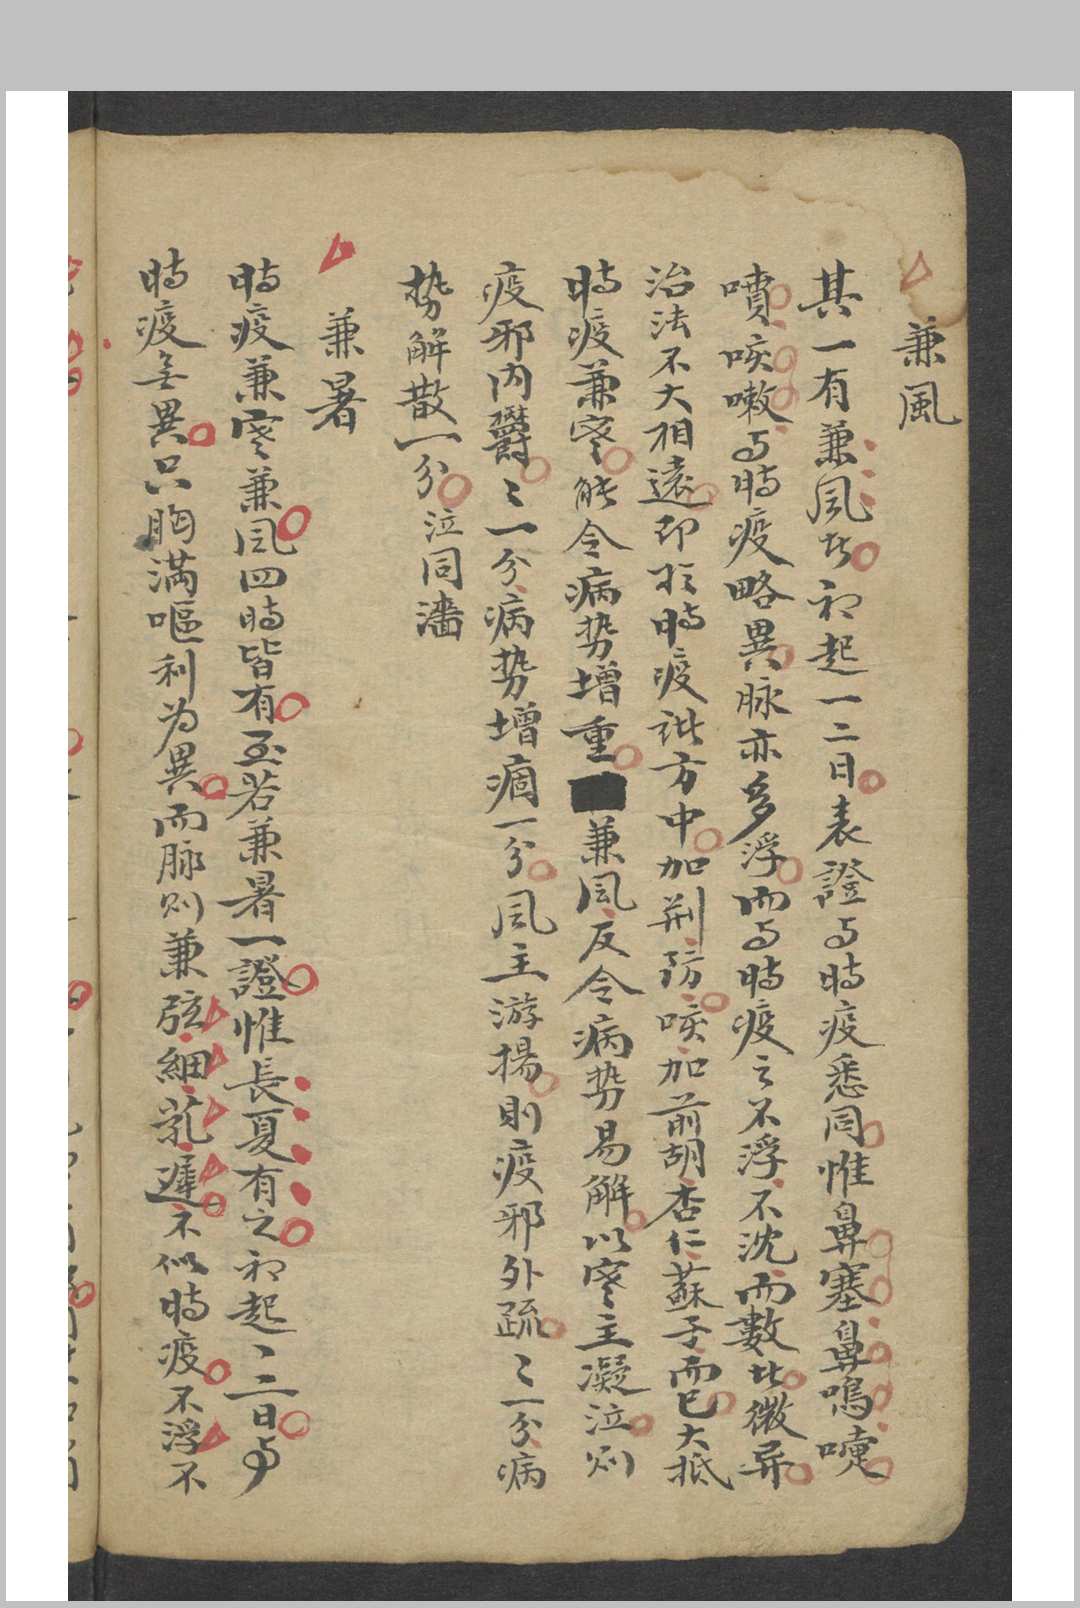 兼風
其一有兼風者初起一二日表證与時疫悉同惟鼻塞鼻鳴嚏
噴咳嗽与時疫略異脉亦多浮而与時疫之不浮不沈而數者微异
治法不大相遠即於時疫諸方中加荆防咳加前胡杏仁蘇子而已大抵
時疫兼寒能令病势增重兼風反令病势易解以寒主凝泣则
疫邪内鬱々一分病势增痼一分風主游揚則疫邪外疏々一分病
势解散一分泣同濇
兼暑
時疫兼寒兼風四時皆有至若兼暑一證惟長夏有之初起一二日与
時疫無異只胸满嘔利为異而脉则兼弦細芤遲不似時疫不浮不